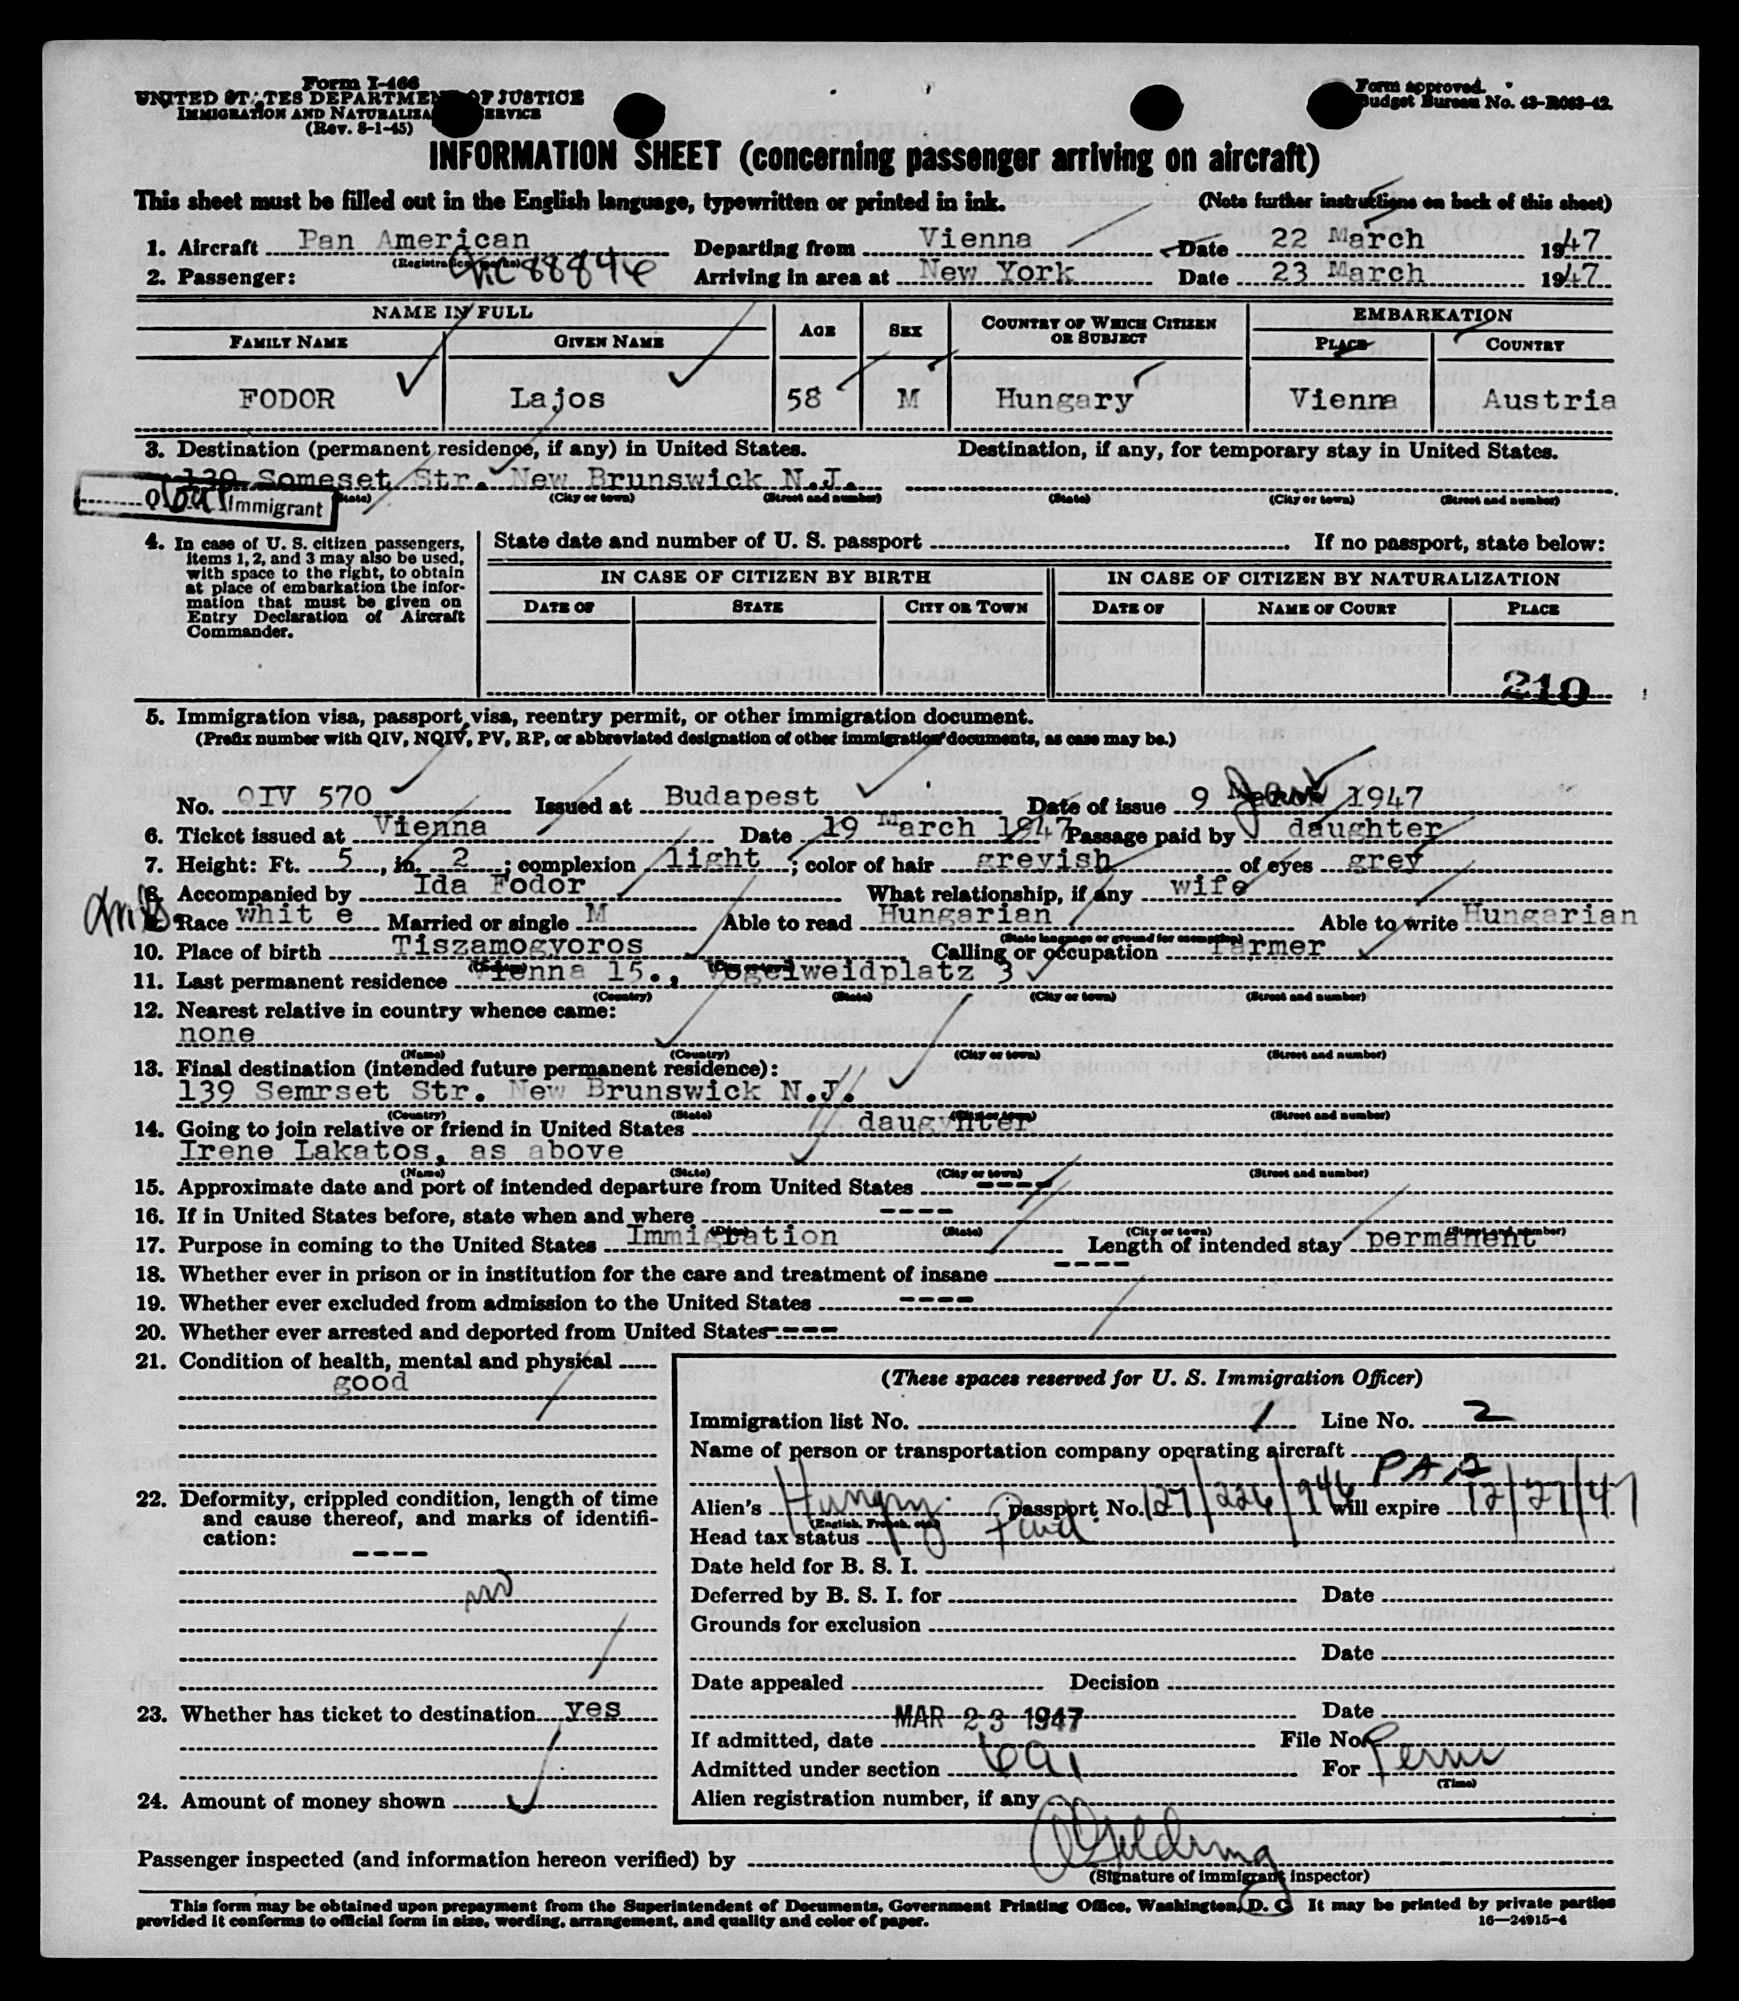 Form I-466
UNITED STATES DEPARTMENT OF JUSTICE
IMMIGRATION AND NATURALIZATION SERVICE
(Rev. 8-1-45)
Form approved.
Budget Bureau No. 43-R063-42.
INFORMATION SHEET (concerning passenger arriving on aircraft)
This sheet must be filled out in the English language, typewritten or printed in ink. (Note further instructions on back of this sheet)
1. Aircraft Pan American Departing from Vienna Date 22 March 1947
(Registration marks)
2. Passenger: NC88846 Arriving in area at New York Date 23 March 1947
NAME IN FULL AGE SEX COUNTRY OF WHICH CITIZEN OR SUBJECT EMBARKATION
FAMILY NAME GIVEN NAME PLACE COUNTRY
FODOR Lajos 58 M Hungary Vienna Austria
3. Destination (permanent residence, if any) in United States. Destination, if any, for temporary stay in United States.
139 Someset Str. New Brunswick N.J.
(State) (City or town) (Street and number) (State) (City or town) (Street and number)
Immigrant
4. In case of U. S. citizen passengers, items 1, 2, and 3 may also be used, with space to the right, to obtain at place of embarkation the information that must be given on Entry Declaration of Aircraft Commander.
State date and number of U. S. passport If no passport, state below:
IN CASE OF CITIZEN BY BIRTH IN CASE OF CITIZEN BY NATURALIZATION
DATE OF STATE CITY OR TOWN DATE OF NAME OF COURT PLACE
210
5. Immigration visa, passport visa, reentry permit, or other immigration document.
(Prefix number with QIV, NQIV, PV, RP, or abbreviated designation of other immigration documents, as case may be.)
No. QIV 570 Issued at Budapest Date of issue 9 Jan 1947
6. Ticket issued at Vienna Date 19 March 1947 Passage paid by daughter
7. Height: Ft. 5, in. 2; complexion light; color of hair greyish of eyes grey
8. Accompanied by Ida Fodor What relationship, if any wife
9. Race whit e Married or single M Able to read Hungarian Able to write Hungarian
(State language or ground for exemption)
10. Place of birth Tiszamogyoros Calling or occupation farmer
11. Last permanent residence Vienna 15., Vogelweidplatz 3
(Country) (State) (City or town) (Street and number)
12. Nearest relative in country whence came:
none
(Name) (Country) (City or town) (Street and number)
13. Final destination (intended future permanent residence):
139 Semrset Str. New Brunswick N.J.
(Country) (State) (City or town) (Street and number)
14. Going to join relative or friend in United States daugvhter
Irene Lakatos, as above
(Name) (State) (City or town) (Street and number)
15. Approximate date and port of intended departure from United States ----
16. If in United States before, state when and where ----
(Date) (State) (City or town) (Street and number)
17. Purpose in coming to the United States Immigration Length of intended stay permanent
18. Whether ever in prison or in institution for the care and treatment of insane ----
19. Whether ever excluded from admission to the United States ----
20. Whether ever arrested and deported from United States ----
21. Condition of health, mental and physical
good
22. Deformity, crippled condition, length of time and cause thereof, and marks of identification:
----
no
23. Whether has ticket to destination yes
24. Amount of money shown
(These spaces reserved for U. S. Immigration Officer)
Immigration list No. 1 Line No. 2
Name of person or transportation company operating aircraft
PAA
Alien's Hungary passport No. 127/226/946 will expire 12/27/47
(English, French, etc.)
Head tax status Paid
Date held for B. S. I.
Deferred by B. S. I. for Date
Grounds for exclusion
Date
Date appealed Decision
Date
If admitted, date MAR 23 1947 File No.
Admitted under section 6A1 For Perm
(Time)
Alien registration number, if any
Passenger inspected (and information hereon verified) by
(Signature of immigrant inspector)
This form may be obtained upon prepayment from the Superintendent of Documents, Government Printing Office, Washington, D. C. It may be printed by private parties
provided it conforms to official form in size, wording, arrangement, and quality and color of paper. 16—24915-4